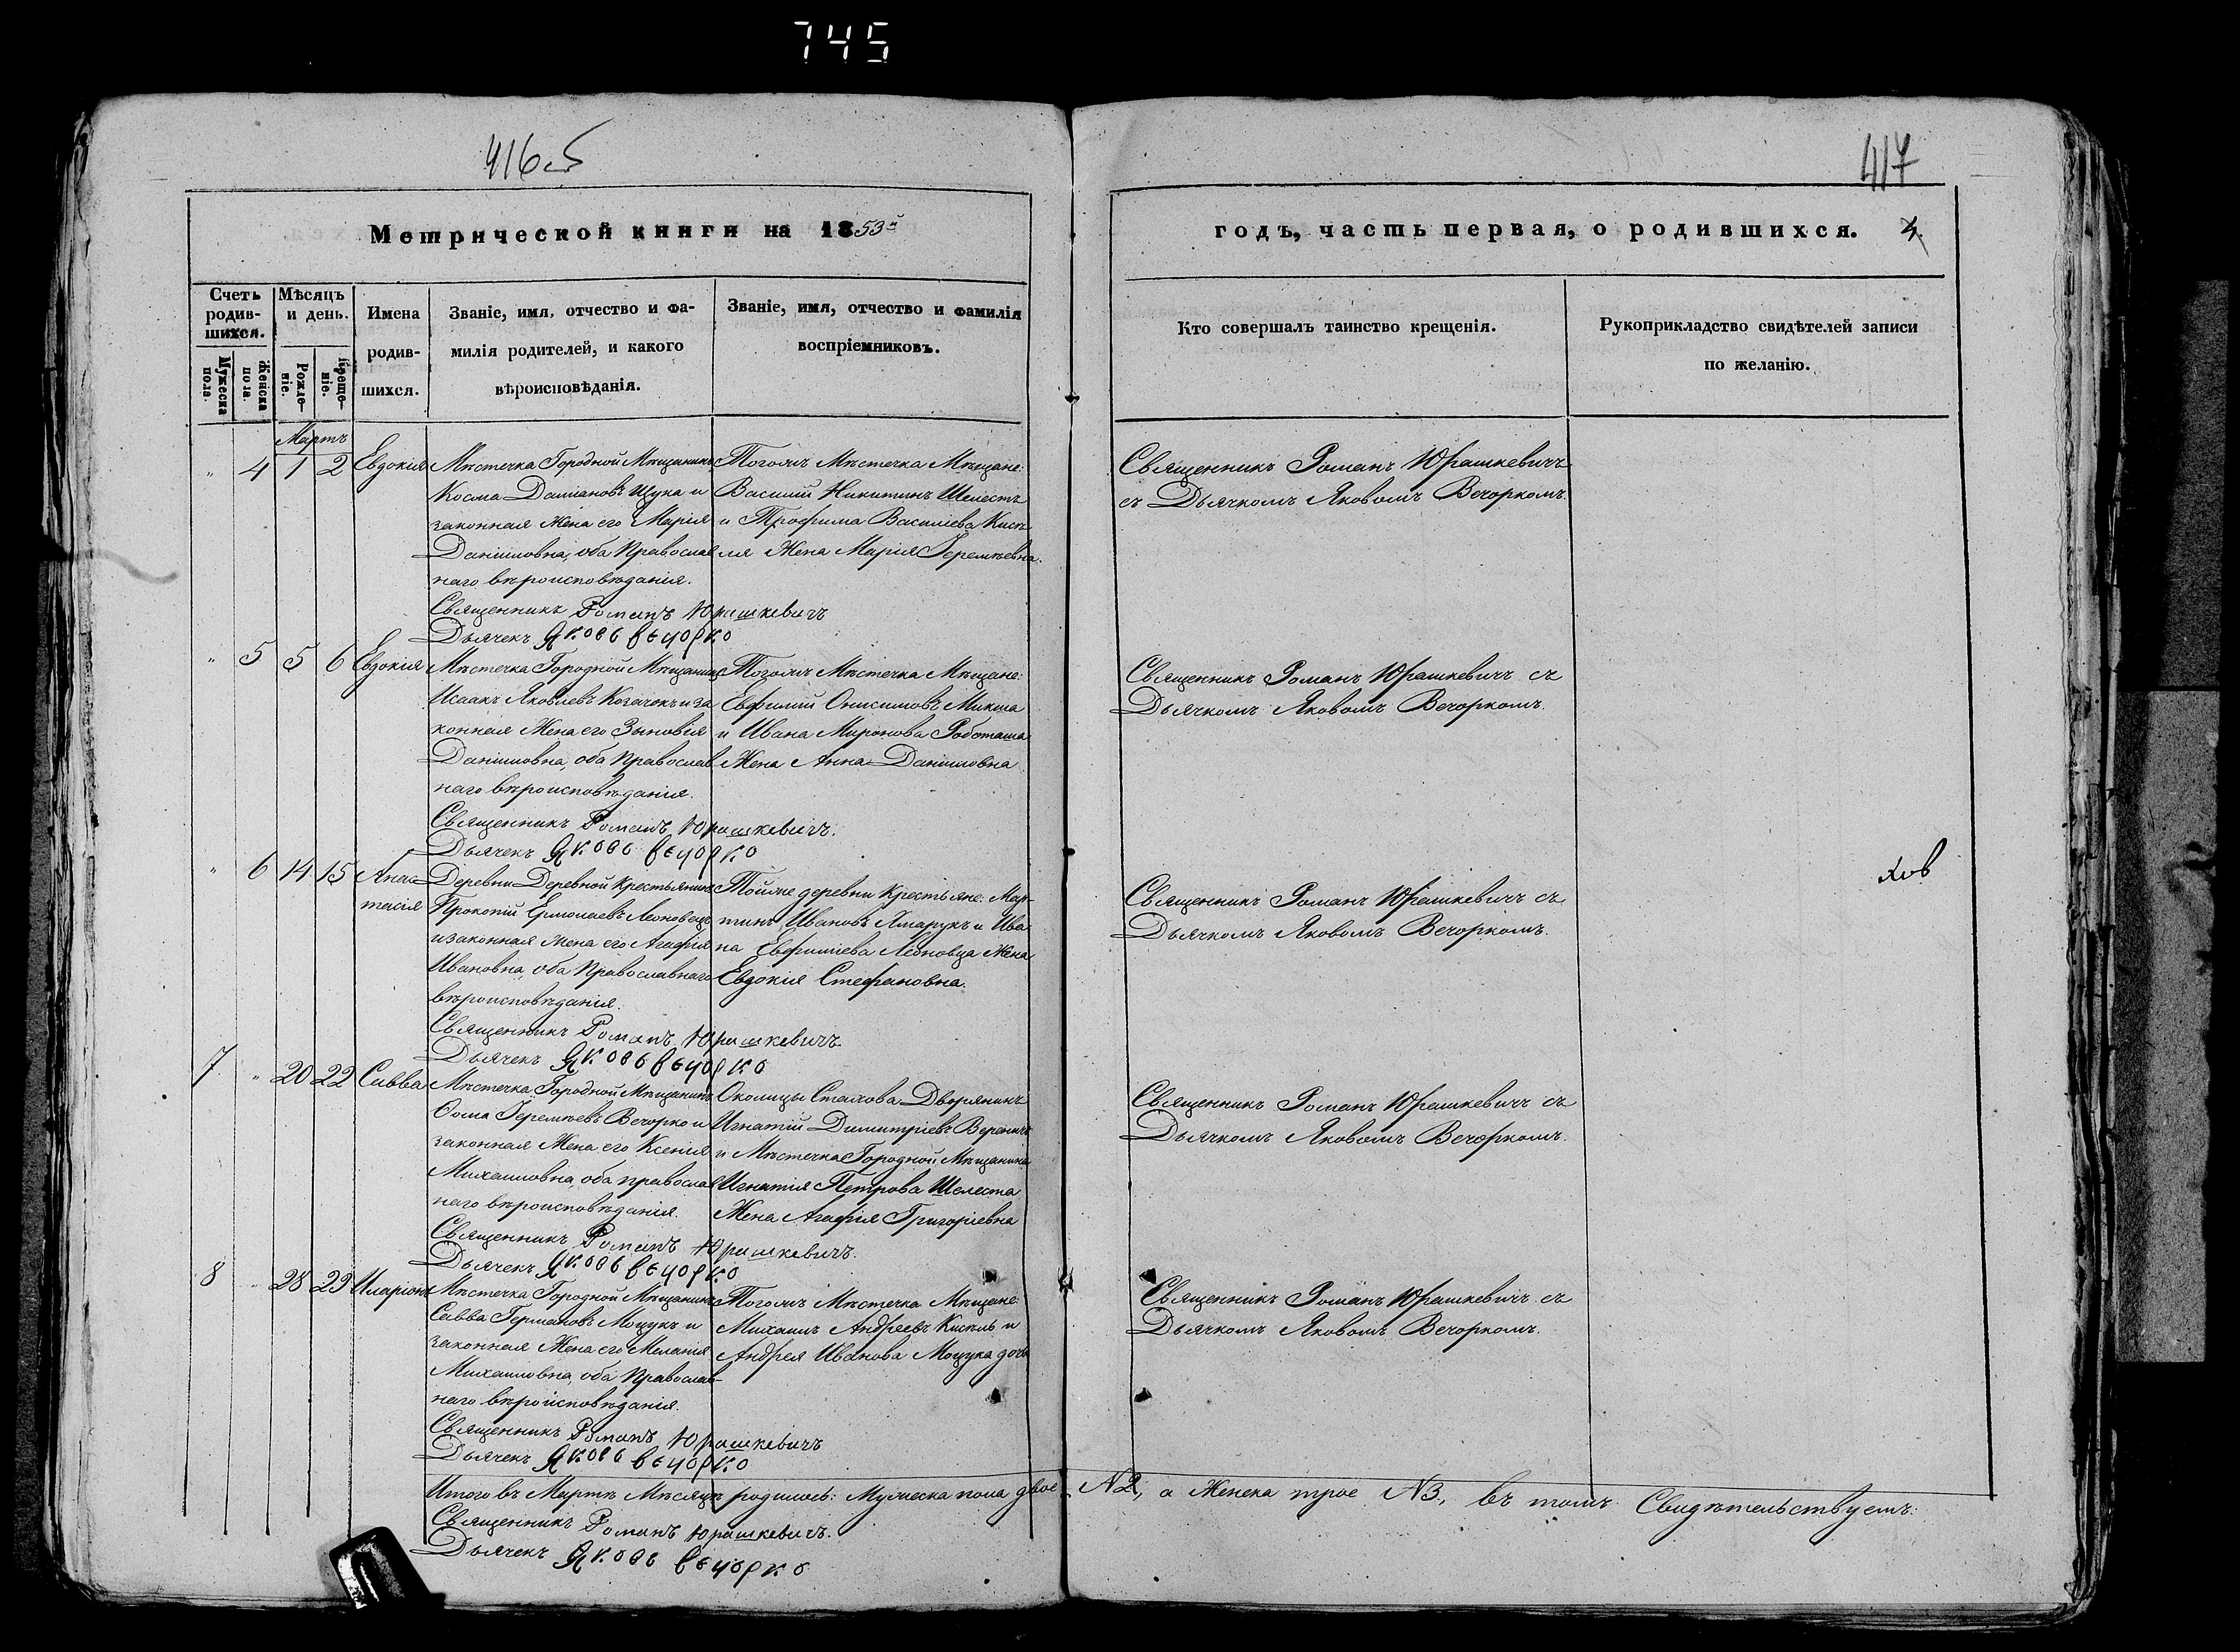 745
416 об
417
Метрической книги на 1853й
годъ, часть первая, о родившихся.
Счетъ родившихся.
Мѣсяцъ и день.
Имена родившихся.
Званіе, имя, отчество и фамилія родителей, и какого вѣроисповѣданія.
Званіе, имя, отчество и фамилія воспріемниковъ.
Кто совершалъ таинство крещенія.
Рукоприкладство свидѣтелей записи по желанію.
Мужеска пола.
Женска пола.
Рожденіе.
Крещеніе.
Мартъ
" 4 1 2 Евдокія
Мѣстечка Городной Мѣщанинъ
Косма Даміановъ Щука и
законная Жена его Марія
Даніиловна, оба Православ
наго вѣроисповѣданія.
Священникъ Романъ Юрашкевичъ
Дьячекъ Яковъ Вечорко
Тогожъ Мѣстечка Мѣщане:
Василій Никитинъ Шелестъ
и Трофима Василіева Кисѣ
ля Жена Марія Іеремѣевна.
Священникъ Романъ Юрашкевичъ
съ Дьячкомъ Яковомъ Вечоркомъ.
" 5 5 6 Евдокія
Мѣстечка Городной Мѣщанинъ
Исаакъ Яковлевъ Козачокъ и за
конная Жена его Зыновія
Даніиловна, оба Православ
наго вѣроисповѣданія.
Священникъ Романъ Юрашкевичъ.
Дьячекъ Яковъ Вечорко
Тогожъ Мѣстечка Мѣщане:
Евфимій Онисимовъ Микша
и Ивана Миронова Роботаша
Жена Анна Даніиловна
Священникъ Романъ Юрашкевичъ съ
Дьячкомъ Яковомъ Вечоркомъ.
" 6 14 15 Анас
тасія
Деревни Деревной Крестьянинъ
Прокопій Ермолаевъ Леоновецъ
и законная жена его Агафія
Ивановна, оба Православнаго
вѣроисповѣданія.
Священникъ Романъ Юрашкевичъ
Дьячекъ Яковъ Вечорко
Тойже деревни Крестьяне: Мар-
тинъ Ивановъ Ямарукъ и Ива
на Евфиміева Леоновца Жена
Евдокія Стефановна.
Священникъ Романъ Юрашкевичъ съ
Дьячкомъ Яковомъ Вечоркомъ.
7 " 20 22 Савва
Мѣстечка Городной Мѣщанинъ
Ѳома Іеремѣевъ Вечорко и
законная Жена его Ксенія
Михаиловна, оба православ
наго вѣроисповѣданія.
Священникъ Романъ Юрашкевичъ.
Дьячекъ Яковъ Вечорко
Околицы Стахова Дворянинъ
Игнатій Димитріевъ Вереничъ
и Мѣстечка Городной Мѣщанина
Игнатія Петрова Шелеста
Жена Агафія Григоріевна
Священникъ Романъ Юрашкевичъ съ
Дьячкомъ Яковомъ Вечоркомъ.
8 " 28 29 Иларіонъ
Мѣстечка Городной Мѣщанинъ
Савва Германовъ Моцукъ и
законная Жена его Меланія
Михаиловна, оба Православ-
наго вѣроисповѣданія.
Священникъ Романъ Юрашкевичъ
Дьячекъ Яковъ Вечорко
Тогожъ Мѣстечка Мѣщане:
Михаилъ Андреевъ Кисѣль и
Андрея Иванова Моцука дочь
Священникъ Романъ Юрашкевичъ съ
Дьячкомъ Яковомъ Вечоркомъ.
Итого въ Мартѣ Мѣсяцѣ родилось: Мужеска пола двое N2, а Женска трое N3, въ томъ Свидѣтельствуемъ:
Священникъ Романъ Юрашкевичъ.
Дьячекъ Яковъ Вечорко